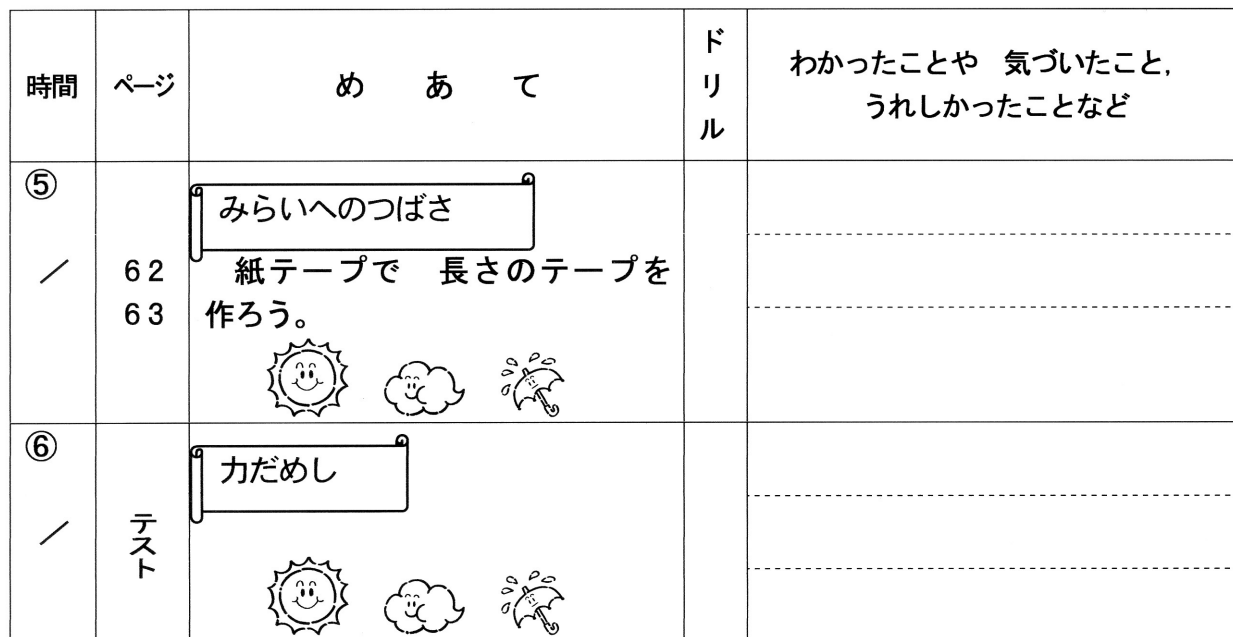 時間 ページ め あ て ドリル わかったことや 気づいたこと,
うれしかったことなど
⑤
みらいへのつばさ
／ 62 紙テープで 長さのテープを
63 作ろう。
⑥
力だめし
／ テスト